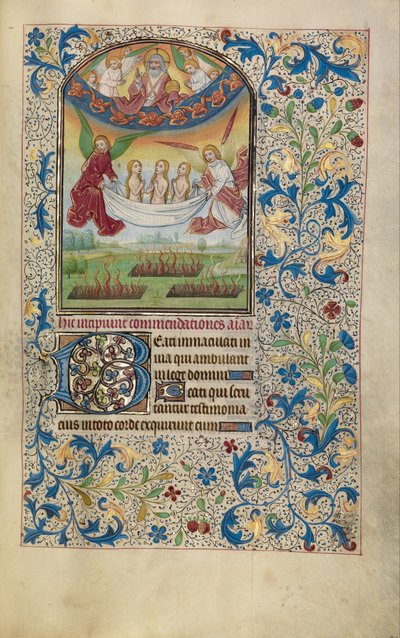 Hic incipiunt commendationes aīar
Eati immaculati in
uia qui ambulant
in lege domini
Eati qui scru
tantur testimonia
eius in toto corde exquirunt eum